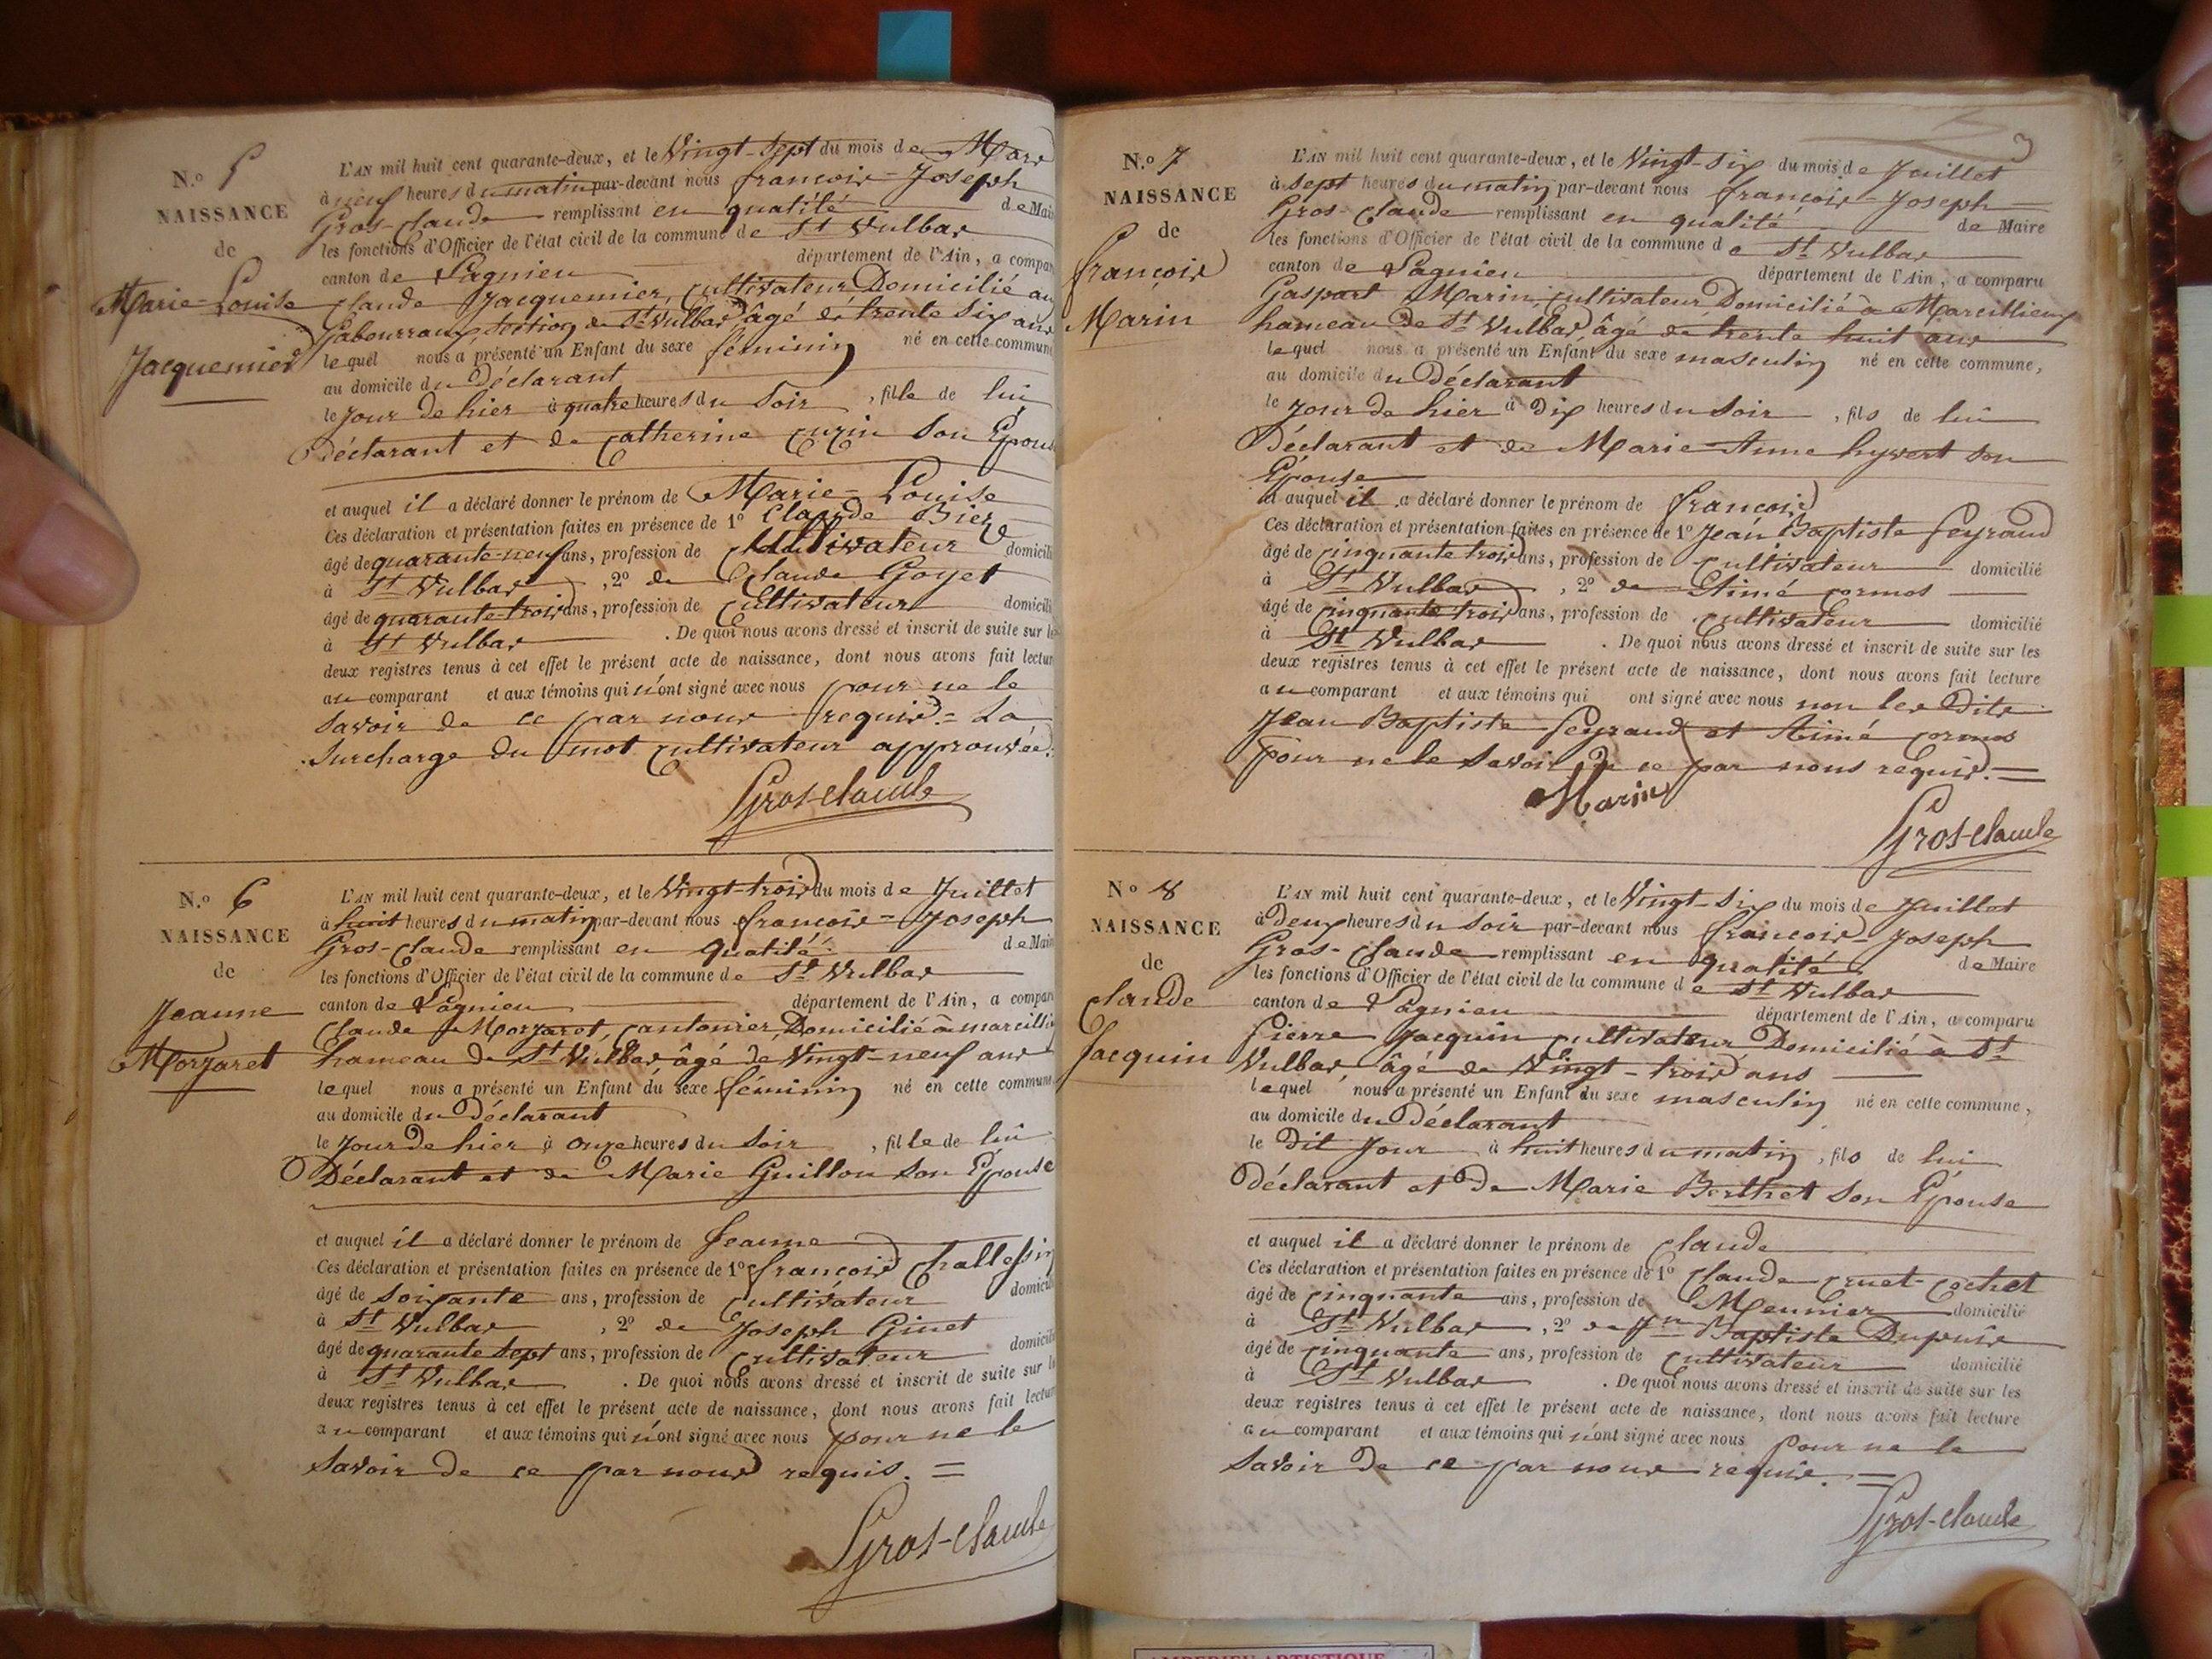 N.o 5
NAISSANCE
de
Marie-Louise
Jacquemier
L'AN mil huit cent quarante-deux, et le Vingt-Sept du mois de Mars
à neuf heures du matin par-devant nous françois-Joseph
Gros-Claude remplissant en qualité de Mai
les fonctions d'Officier de l'état civil de la commune de St Vulbas
canton de Lagnieu département de l'Ain, a compar
Claude Jacquemier, cultivateur Domicilié au
section de St Vulbas âgé de trente Six ans
lequel nous a présenté un Enfant du sexe féminin né en cette commune
au domicile du Déclarant
le Jour de hier à quatre heures du Soir, fille de lui
Déclarant et de Catherine Son Epouse
et auquel il a déclaré donner le prénom de Marie-Louise
Ces déclaration et présentation faites en présence de 1o Claude
âgé de quarante-neuf ans, profession de Cultivateur domicili
à St Vulbas, 2o de Claude Goyet
âgé de quarante-trois ans, profession de Cultivateur domicili
à St Vulbas. De quoi nous avons dressé et inscrit de suite sur le
deux registres tenus à cet effet le présent acte de naissance, dont nous avons fait lectur
au comparant et aux témoins qui n'ont signé avec nous pour ne le
Savoir de ce par nous requis. = La
Surcharge du mot cultivateur approuvée.
Gros-claude
N.o 6
NAISSANCE
de
Jeanne
Morzaret
L'AN mil huit cent quarante-deux, et le Vingt-trois du mois de Juillet
à huit heures du matin par-devant nous françois-Joseph
Gros-Claude remplissant en qualité de Mair
les fonctions d'Officier de l'état civil de la commune de St Vulbas
canton de Lagnieu département de l'Ain, a compar
Claude Morzaret, cantonier, Domicilié à
hameau de St Vulbas, âgé de Vingt-neuf ans
lequel nous a présenté un Enfant du sexe féminin né en cette commune
au domicile du Déclarant
le Jour de hier à onze heures du Soir, fille de lui
Déclarant et de Marie Guillon Son Epouse
et auquel il a déclaré donner le prénom de Jeanne
Ces déclaration et présentation faites en présence de 1o françois
âgé de Soixante ans, profession de Cultivateur domicili
à St Vulbas, 2o de Joseph Ginet
âgé de quarante Sept ans, profession de Cultivateur domicili
à St Vulbas. De quoi nous avons dressé et inscrit de suite sur le
deux registres tenus à cet effet le présent acte de naissance, dont nous avons fait lectur
au comparant et aux témoins qui n'ont signé avec nous pour ne le
Savoir de ce par nous requis. =
Gros-claude
3
N.o 7
NAISSANCE
de
françois
Marin
L'AN mil huit cent quarante-deux, et le Vingt-Six du mois de Juillet
à Sept heures du matin par-devant nous françois-Joseph
Gros-Claude remplissant en qualité de Maire
les fonctions d'Officier de l'état civil de la commune de St Vulbas
canton de Lagnieu département de l'Ain, a comparu
Gaspart Marin, cultivateur Domicilié à Marcillieux
hameau de St Vulbas, âgé de trente huit ans
lequel nous a présenté un Enfant du sexe masculin né en cette commune,
au domicile du Déclarant
le Jour de hier à Dix heures du Soir, fils de lui
Déclarant et de Marie-Anne hyvert Son
Epouse
et auquel il a déclaré donner le prénom de françois
Ces déclaration et présentation faites en présence de 1o Jean Baptiste feyraud
âgé de cinquante trois ans, profession de Cultivateur domicilié
à St Vulbas, 2o de Aimé cormos
âgé de cinquante trois ans, profession de Cultivateur domicilié
à St Vulbas. De quoi nous avons dressé et inscrit de suite sur les
deux registres tenus à cet effet le présent acte de naissance, dont nous avons fait lecture
au comparant et aux témoins qui ont signé avec nous non les Dits
Jean Baptiste feyraud et Aimé cormos
pour ne le Savoir de ce par nous requis. =
Marin
Gros-claude
No 8
NAISSANCE
de
Claude
Jacquin
L'AN mil huit cent quarante-deux, et le Vingt-Six du mois de Juillet
à Deux heures du Soir par-devant nous françois-Joseph
Gros-Claude remplissant en qualité de Maire
les fonctions d'Officier de l'état civil de la commune de St Vulbas
canton de Lagnieu département de l'Ain, a comparu
Pierre Jacquin cultivateur Domicilié à St
Vulbas, âgé de Vingt-trois ans
lequel nous a présenté un Enfant du sexe masculin né en cette commune,
au domicile du Déclarant
le Dit Jour à huit heures du matin, fils de lui
Déclarant et De Marie Berthet Son Epouse
et auquel il a déclaré donner le prénom de Claude
Ces déclaration et présentation faites en présence de 1o Claude cruet-Cochet
âgé de cinquante ans, profession de Meunier domicilié
à St Vulbas, 2o de Jn Baptiste Dupuis
âgé de cinquante ans, profession de Cultivateur domicilié
à St Vulbas. De quoi nous avons dressé et inscrit de suite sur les
deux registres tenus à cet effet le présent acte de naissance, dont nous avons fait lecture
au comparant et aux témoins qui n'ont signé avec nous pour ne le
Savoir De ce par nous requis. =
Gros-claude